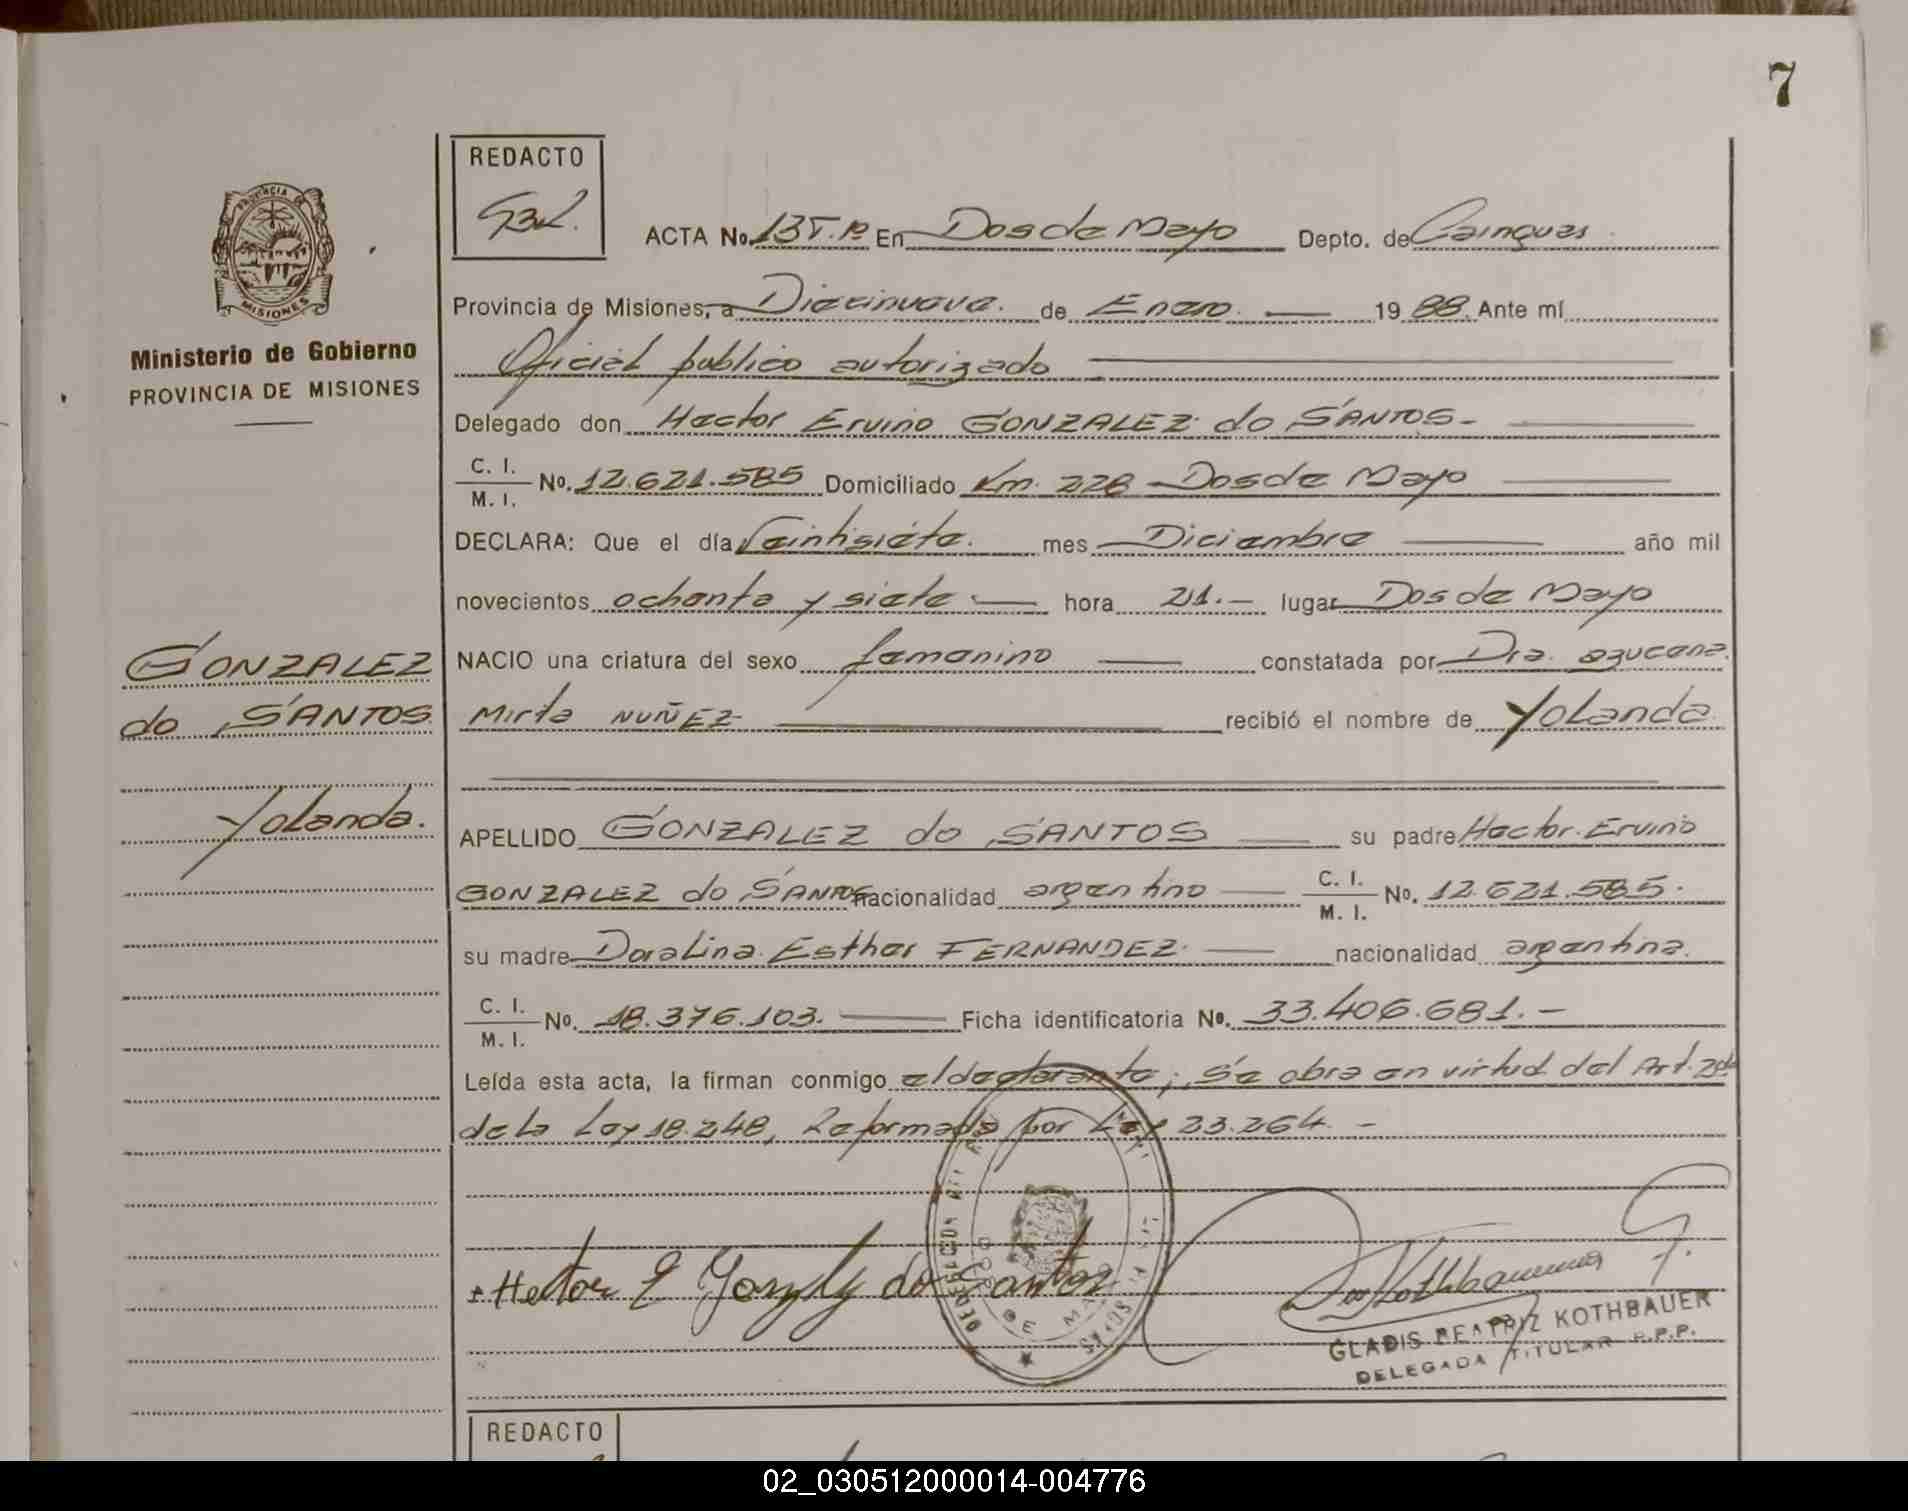 7
REDACTO
ACTA No. 13 T. Iº En Dos de Mayo Depto. de Cainguas
Provincia de Misiones, a Diecinueve de Enero 19 88 Ante mí
Oficial publico autorizado
Delegado don Hector Ervino GONZALEZ do SANTOS-
C. I.
M. I.
No. 12.621.585 Domiciliado Km. 228 Dos de Mayo
DECLARA: Que el día Veintisiete. mes Diciembre año mil
novecientos ochenta y siete hora 21.- lugar Dos de Mayo
NACIO una criatura del sexo femenino constatada por Dra. azucena
Mirta NUÑEZ recibió el nombre de Yolanda
APELLIDO GONZALEZ do SANTOS su padre Hector Ervino
GONZALEZ do SANTOS nacionalidad argentino C. I. M. I. No. 12.621.585.
su madre Doralina Esther FERNANDEZ nacionalidad argentina.
C. I.
M. I.
No. 18.376.103. Ficha identificatoria No. 33.406.681.-
Leída esta acta, la firman conmigo el declarante; Se obra en virtud del Art. 2do
de la Ley 18.248, Reformado por Ley 23.264. -
Hector E Gonzalez do Santos
GLADIS BEATRIZ KOTHBAUER
DELEGADA TITULAR R.P.P.
DELEGACION DEL
DOS DE MAYO
PROVINCIA DE
MISIONES
Ministerio de Gobierno
PROVINCIA DE MISIONES
GONZALEZ
do SANTOS
Yolanda.
REDACTO
02_030512000014-004776